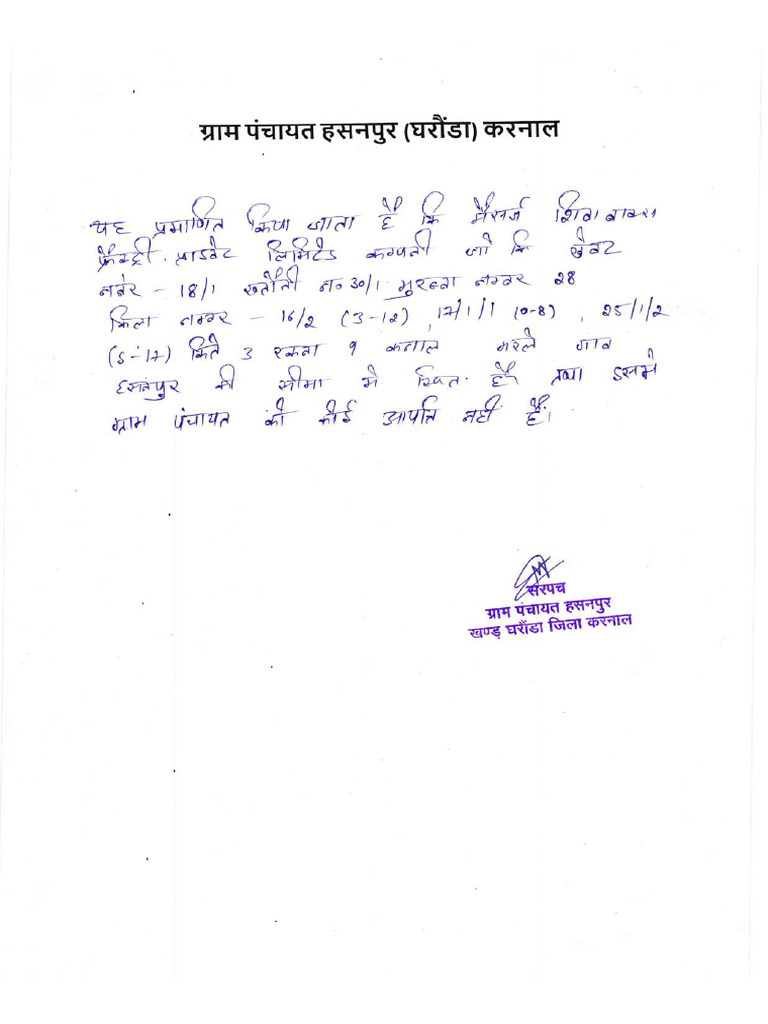 ग्राम पंचायत हसनपुर (घरौंडा) करनाल
यह प्रमाणित किया जाता है कि मैसर्ज शिवा बाक्स
फ़ैक्ट्री प्राइवेट लिमिटेड कम्पनी जो कि खेवट
नबंर - 18/1 खतौनी न० 30/1 मुरब्बा नम्बर 28
किला नम्बर - 16/2 (3-12) , 17/1/1 (0-8) , 25/1/2
(5-17) किते 3 रकबा 9 कनाल मरले गाव
हसनपुर की सीमा मे स्थित है तथा इसमे
ग्राम पंचायत को कोई आपत्ति नहीं है।
सरपच
ग्राम पंचायत हसनपुर
खण्ड़ घरौंडा जिला करनाल